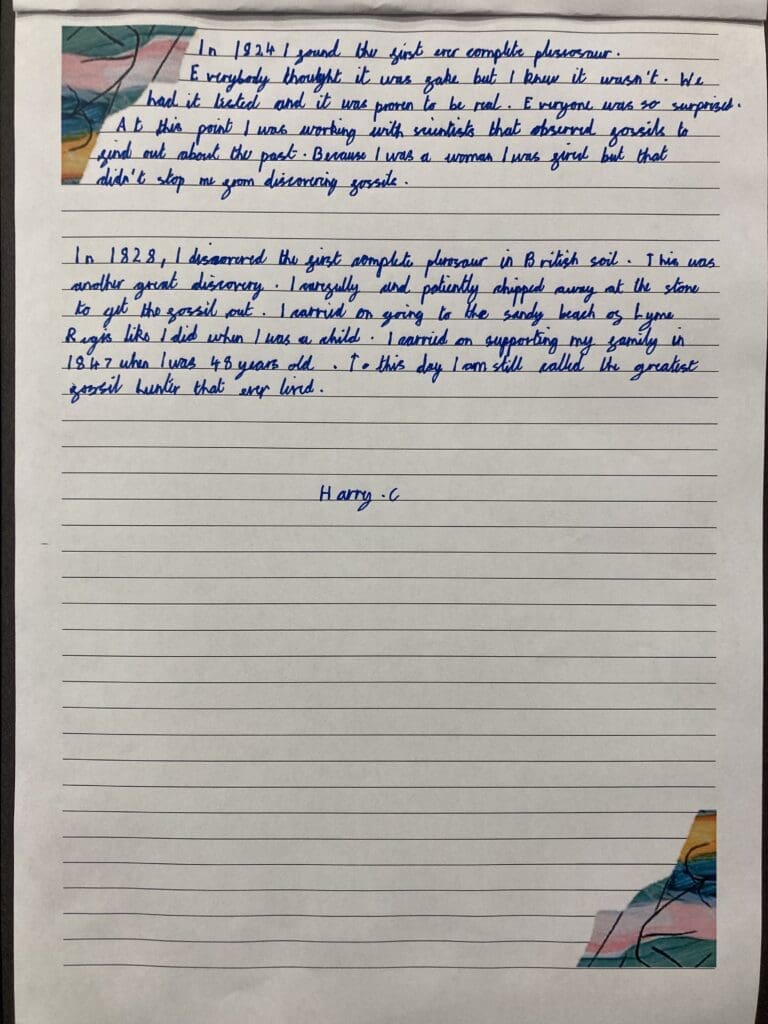 In 1824 I found the first ever complete plesiosaur.
Everybody thought it was fake but I knew it wasn't. We
had it tested and it was proven to be real. Everyone was so surprised.
At this point I was working with scientists that observed fossils to
find out about the past. Because I was a woman I was fired but that
didn't stop me from discovering fossils.
In 1828, I discovered the first complete pterosaur in British soil. This was
another great discovery. I carefully and patiently chipped away at the stone
to get the fossil out. I carried on going to the sandy beach of Lyme
Regis like I did when I was a child. I carried on supporting my family in
1847 when I was 48 years old. To this day I am still called the greatest
fossil hunter that ever lived.
Harry.C